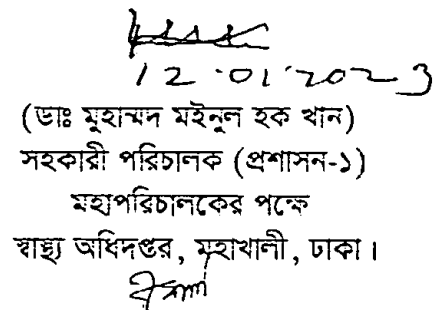 12.01.2023
(ডাঃ মুহাম্মদ মইনুল হক খান)
সহকারী পরিচালক (প্রশাসন-১)
মহাপরিচালকের পক্ষে
স্বাস্থ্য অধিদপ্তর, মহাখালী, ঢাকা।